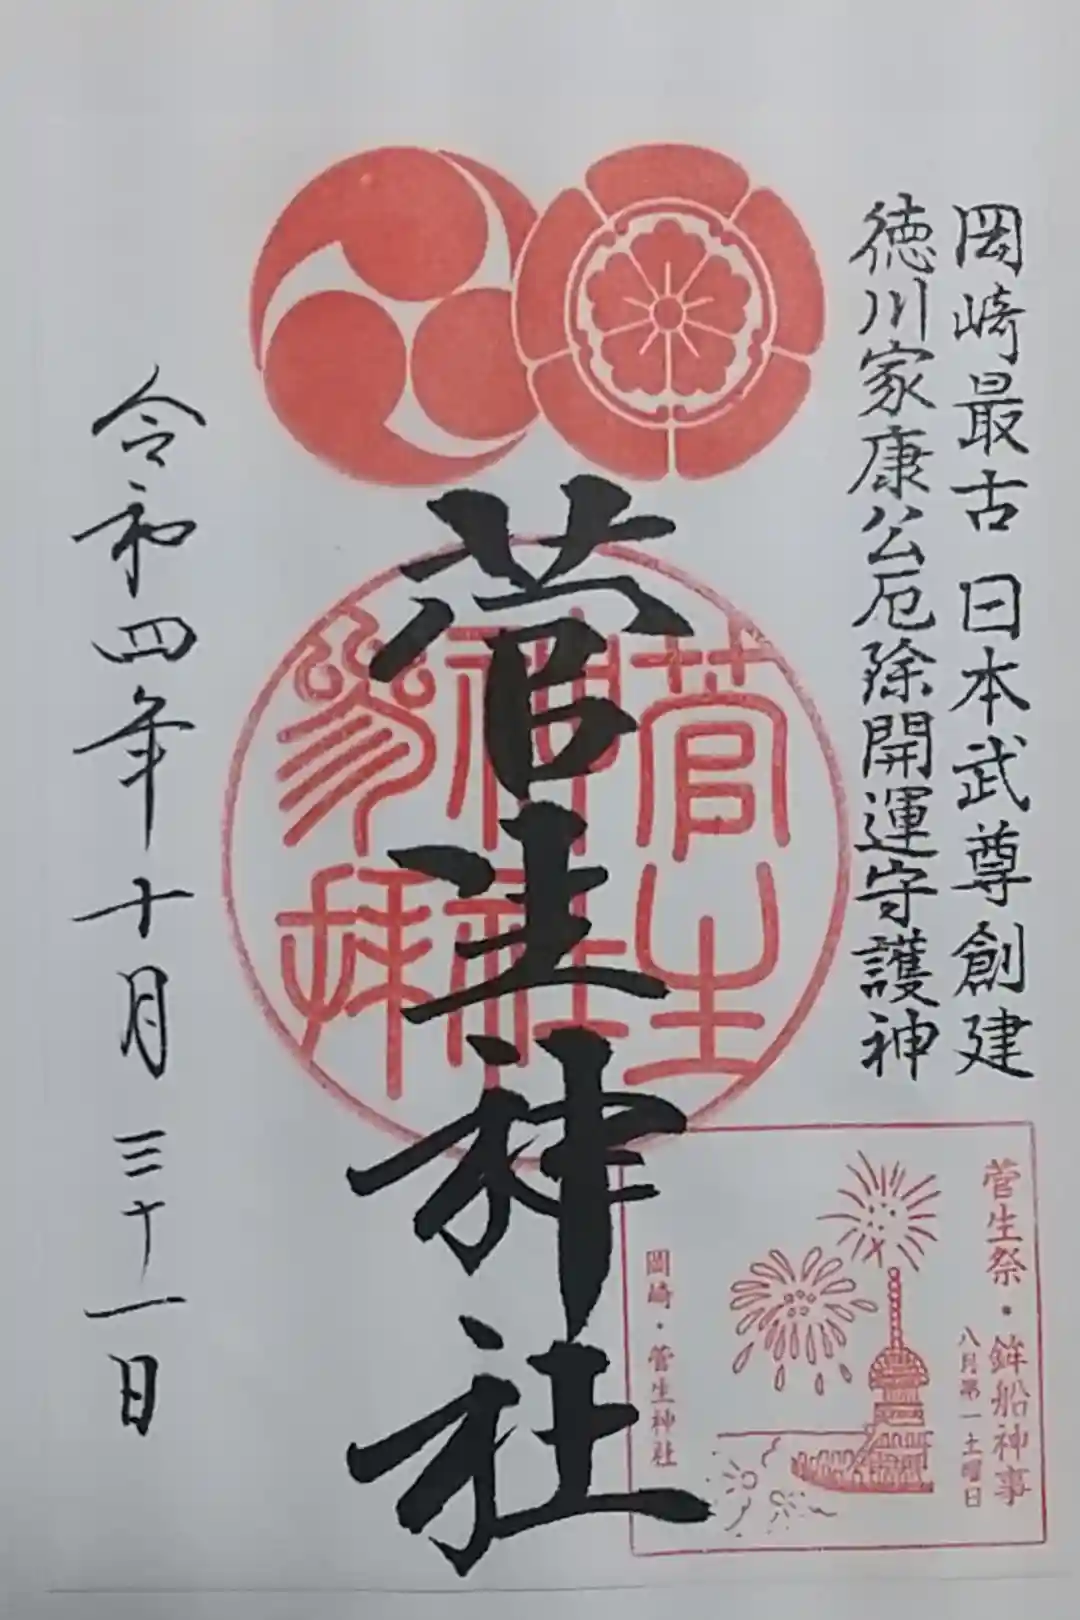 岡崎最古 日本武尊創建
徳川家康公厄除開運守護神
菅生神社
令和四年十月三十一日
菅生
神社
参拝
菅生祭・鉾船神事
八月第一土曜日
岡崎・菅生神社